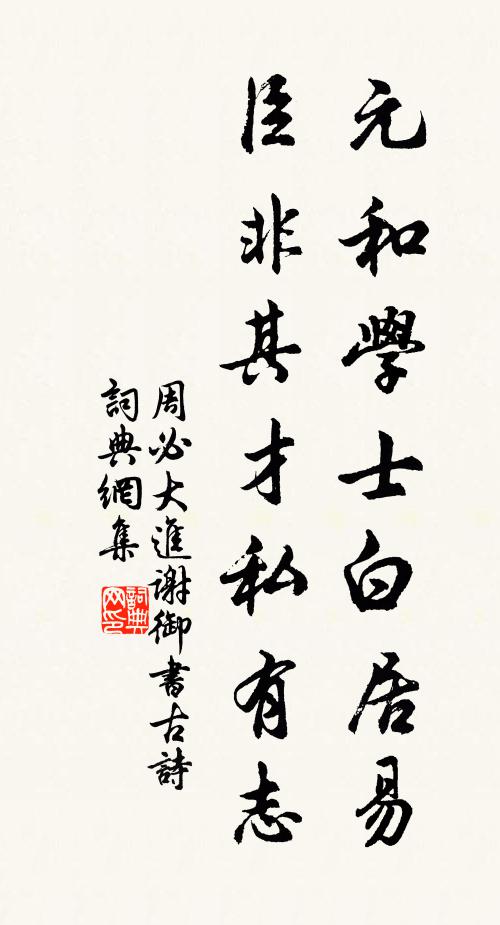 元和學士白居易
臣非其才私有志
周必大進謝御書古詩
詞典網集
詞典网印